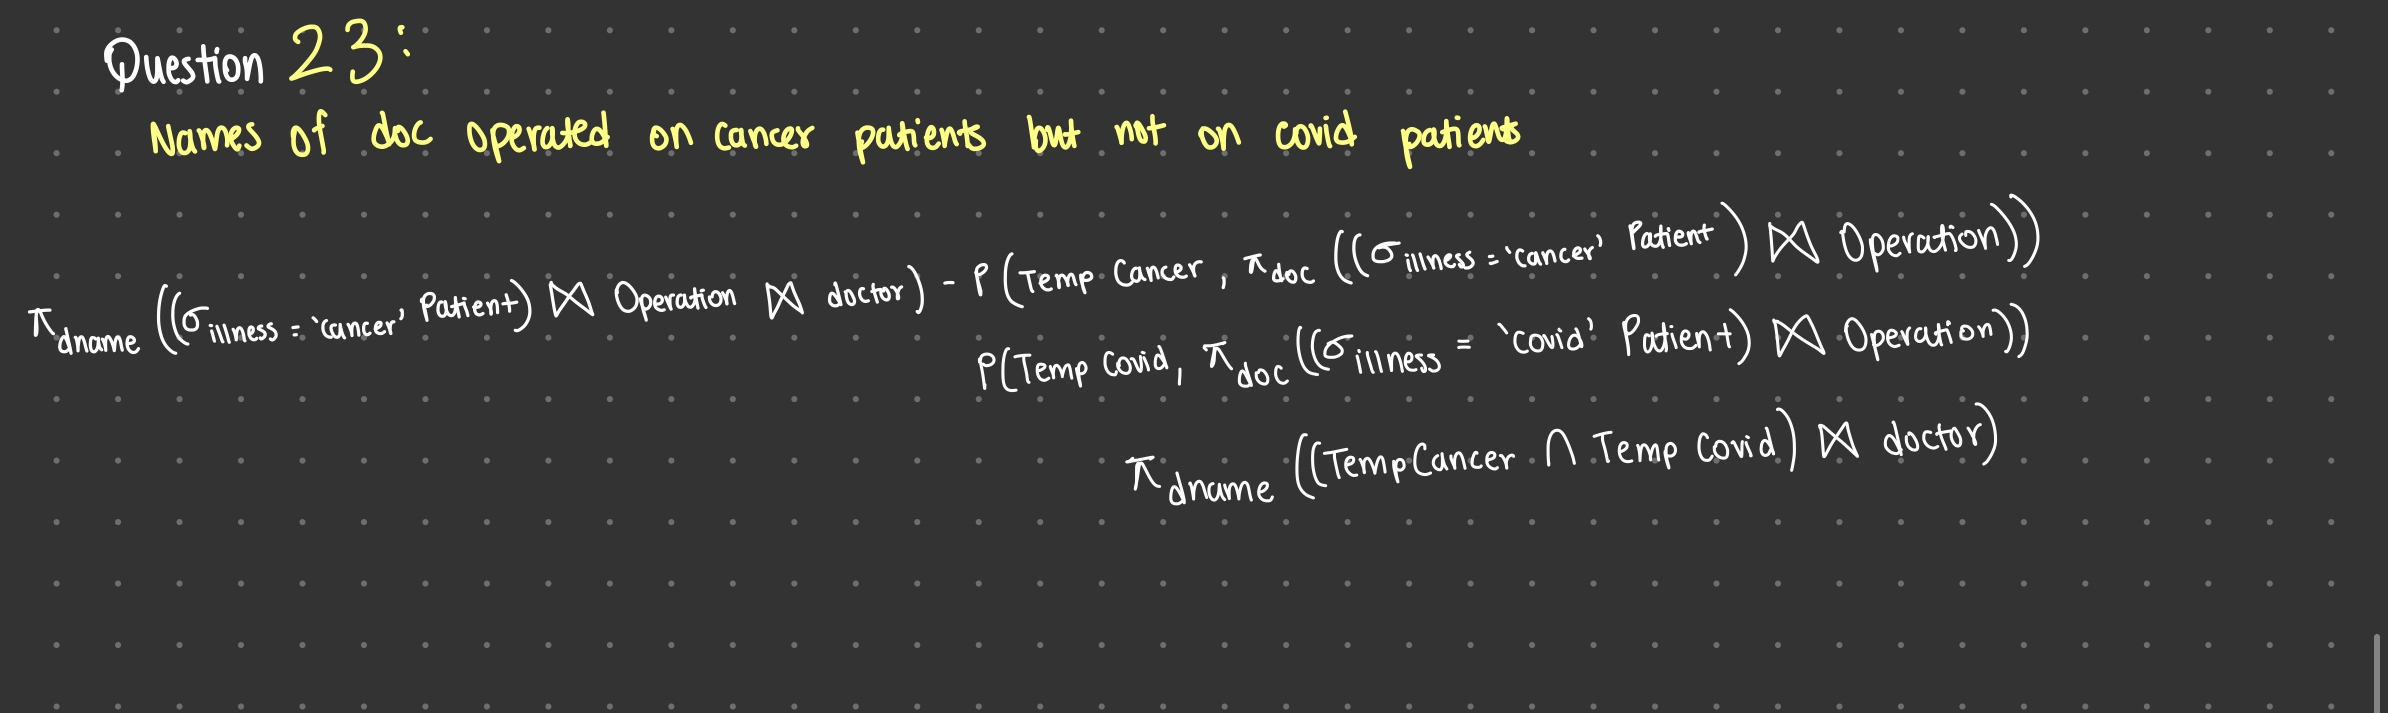 Question 23:
Names of doc operated on cancer patients but not on covid patients
π dname ((σ illness = 'cancer' Patient) ⋈ Operation ⋈ doctor) - ρ (Temp Cancer, π doc ((σ illness = 'cancer' Patient) ⋈ Operation))
ρ(Temp Covid, π doc ((σ illness = 'covid' Patient) ⋈ Operation))
π dname ((TempCancer ∩ Temp Covid) ⋈ doctor)